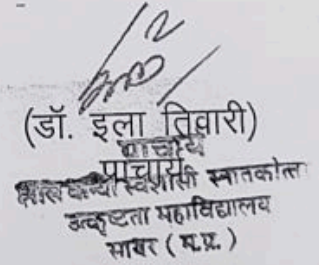 (डॉ. इला तिवारी)
प्राचार्य
प्राचार्य
स्वशासी स्नातकोत्त
उत्कृष्टता महाविद्यालय
सागर (म.प्र.)